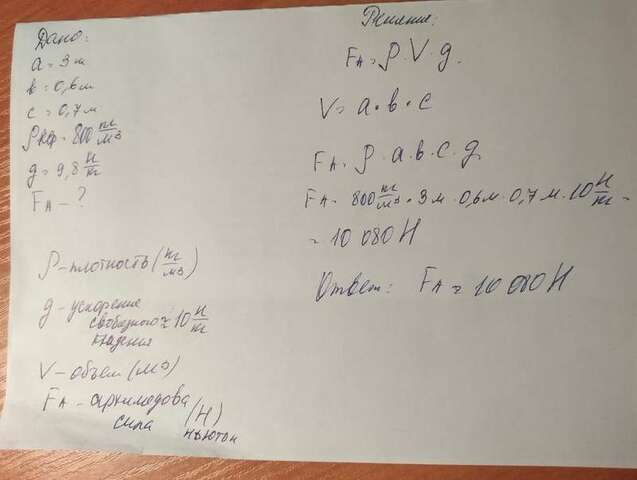 Дано:
a = 3 м
b = 0,6 м
c = 0,7 м
ρкр = 800 кг/м3
g = 9,8 Н/кг
FA - ?
ρ - плотность (кг/м3)
g - ускорение
свободного ≈ 10 Н/кг
падения
V - объем (м3)
FA - архимедова
сила (Н)
ньютон
Решение:
FA = ρ · V · g.
V = a · b · c
FA = ρ · a · b · c · g.
FA = 800 кг/м3 · 3 м · 0,6 м · 0,7 м · 10 Н/кг =
= 10 080 Н
Ответ: FA ≈ 10 080 Н